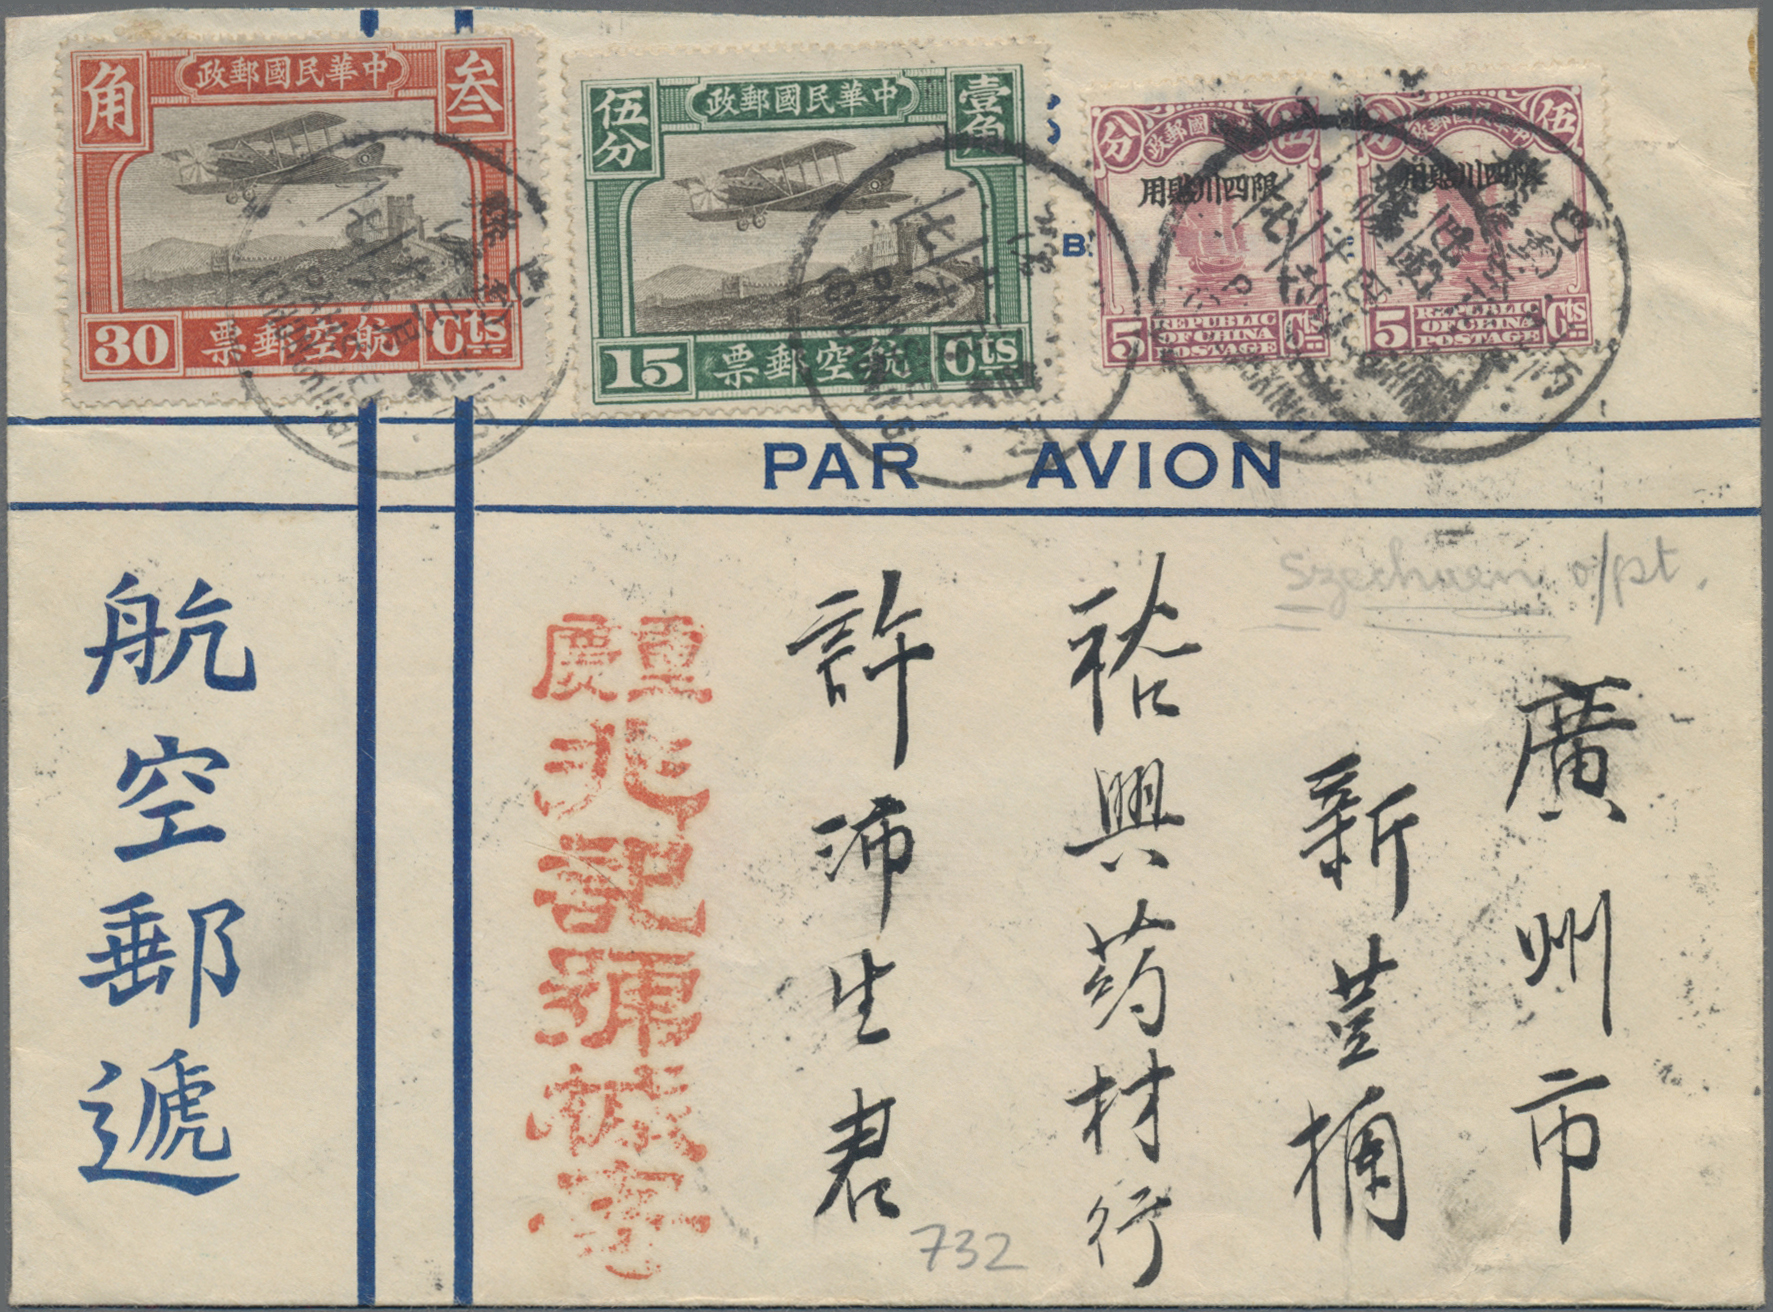 政郵國民華中
角
叁
30
票郵空航
Cts
政郵國民華中
伍分
壹角
15
票郵空航
Cts
分
伍
用貼川四限
5
REPUBLIC
OF CHINA
POSTAGE
Cts
分
伍
用貼川四限
5
REPUBLIC
OF CHINA
POSTAGE
Cts
B.
PAR AVION
Szechuen o/pt.
廣州市
新荳欄
裕興药材行
許沛生君
重慶
兆記號緘寄
航空郵遞
732